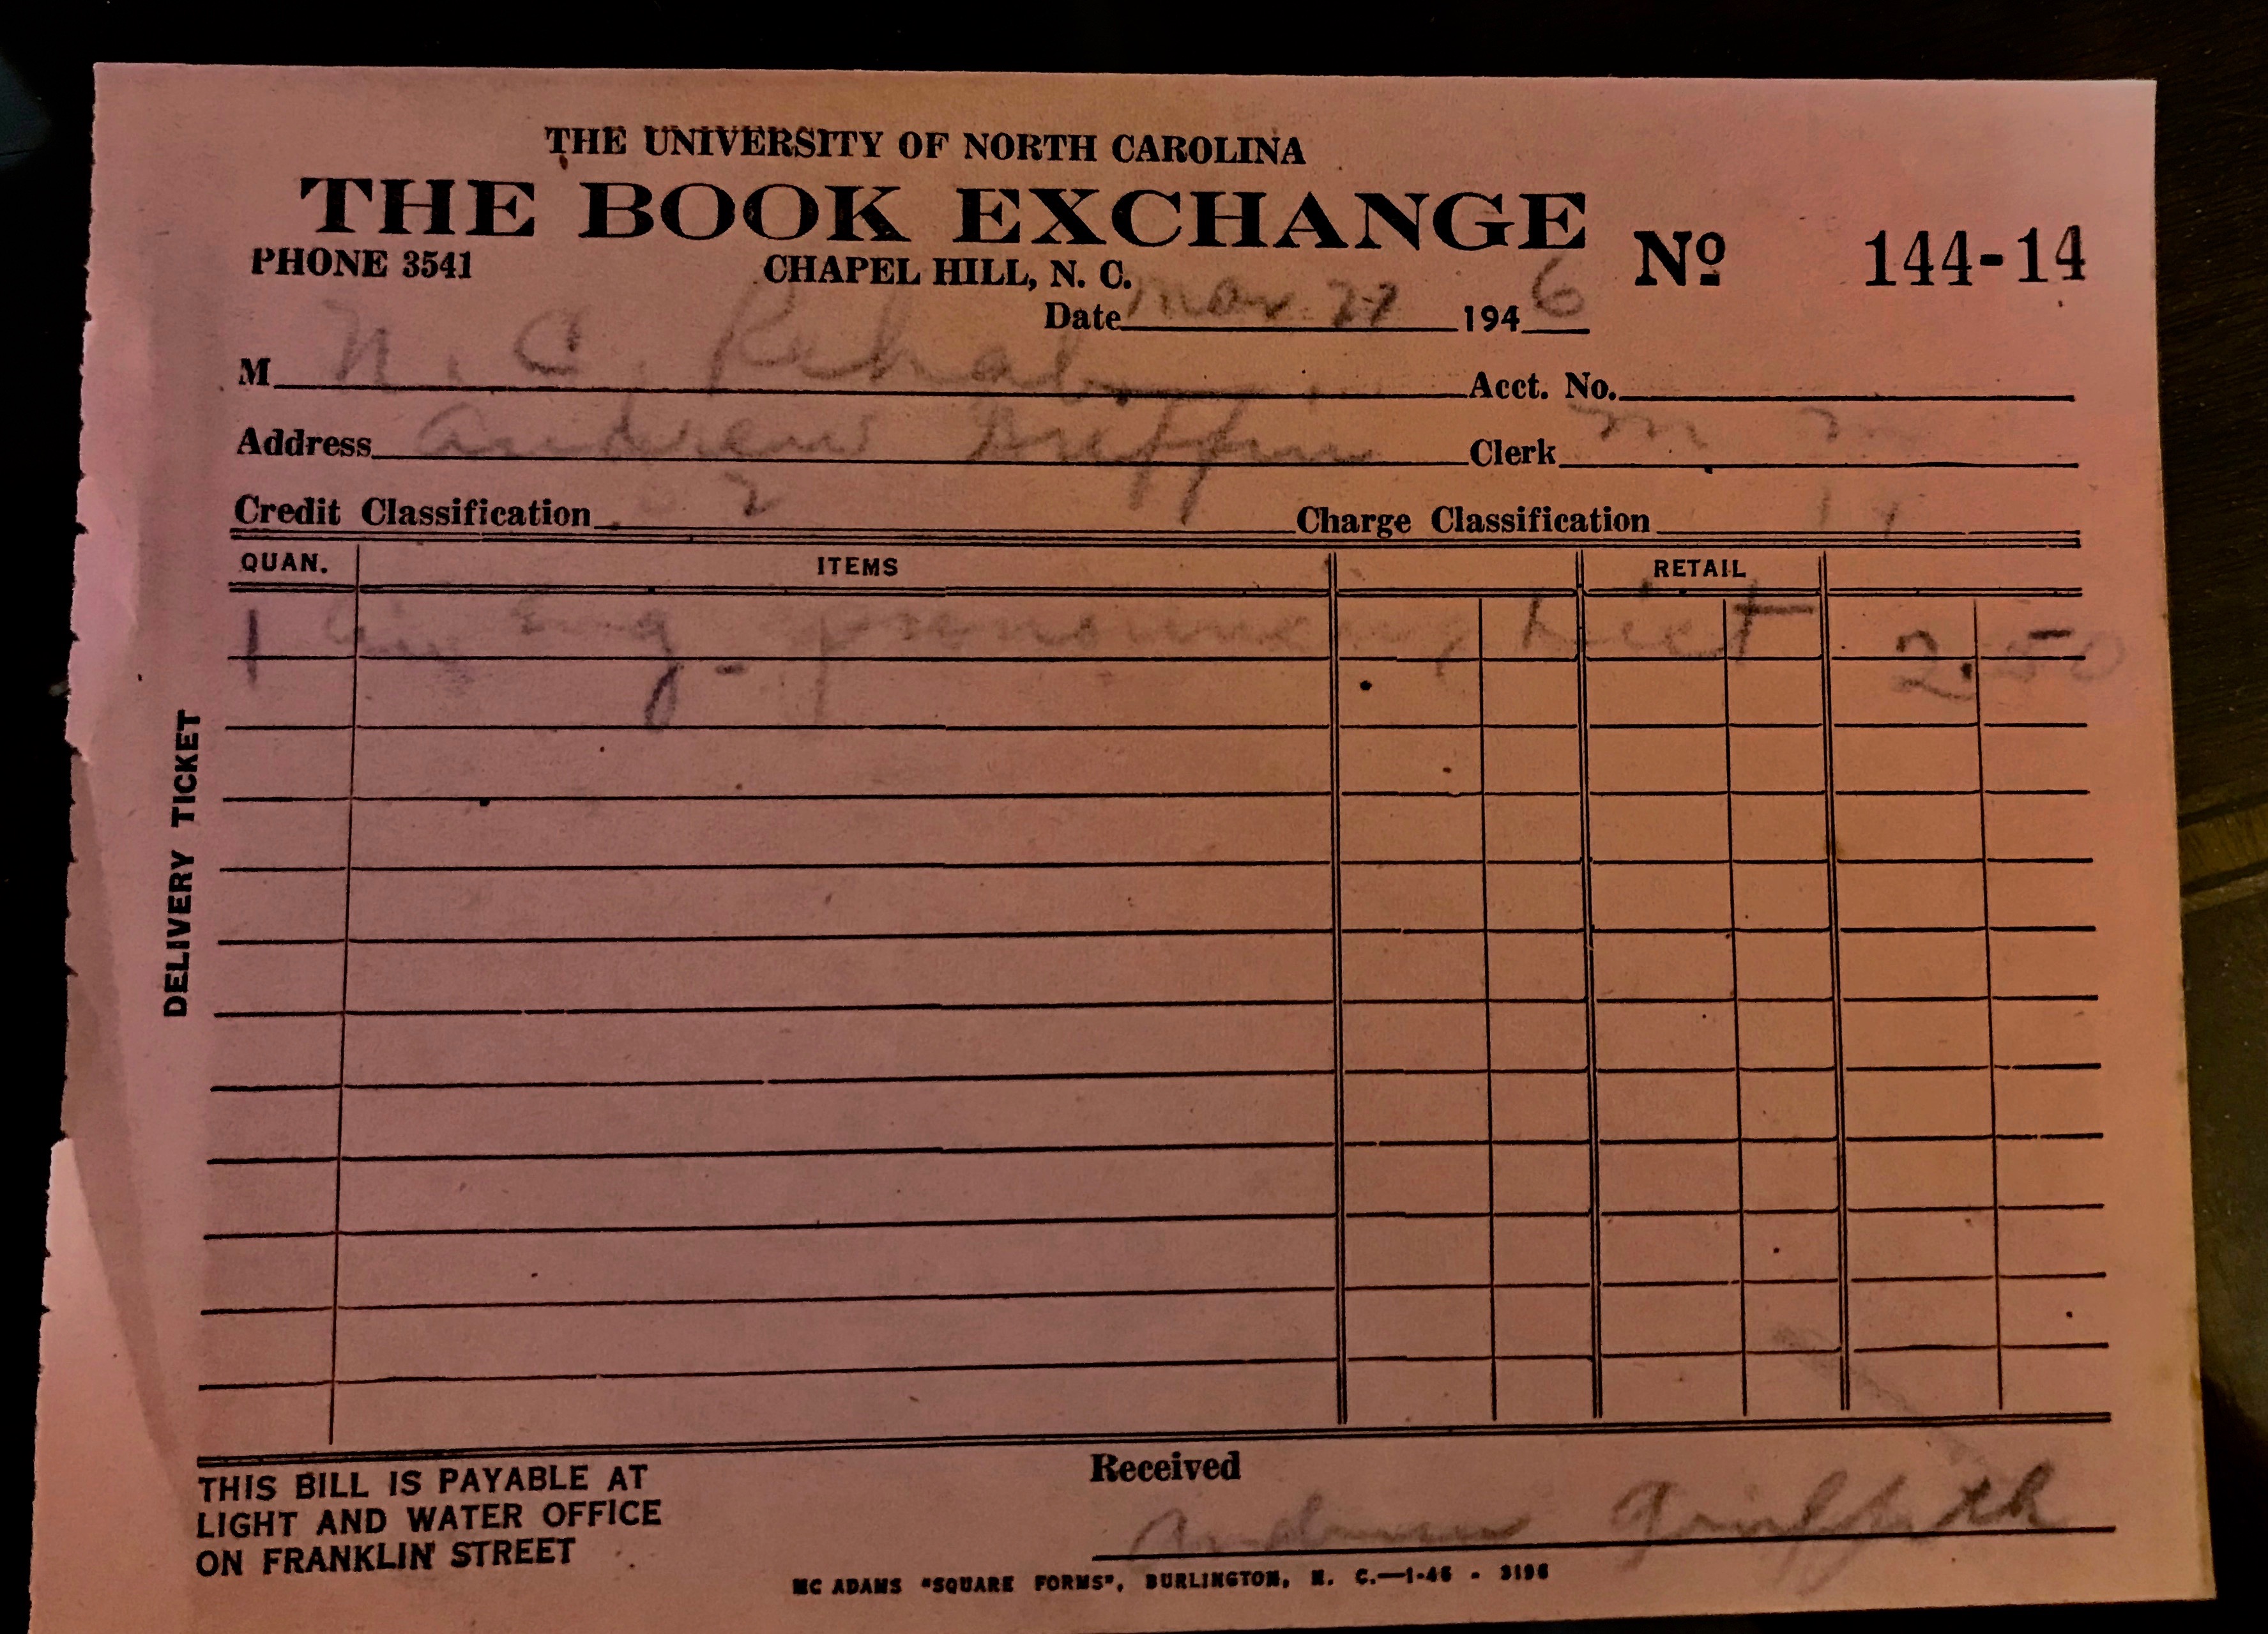 THE UNIVERSITY OF NORTH CAROLINA
THE BOOK EXCHANGE
Nº 144-14
PHONE 3541 CHAPEL HILL, N. C.
Date Mar 27 1946
M N. C. Rehab. Acct. No.
Address Andrew Griffin Clerk m m
Credit Classification Charge Classification
QUAN. ITEMS RETAIL
1 Eng. pronouncing Dict 2.50
DELIVERY TICKET
THIS BILL IS PAYABLE AT
LIGHT AND WATER OFFICE
ON FRANKLIN STREET
Received
Andrew Griffith
MC ADAMS "SQUARE FORMS", BURLINGTON, N. C.—1-46 - 3196